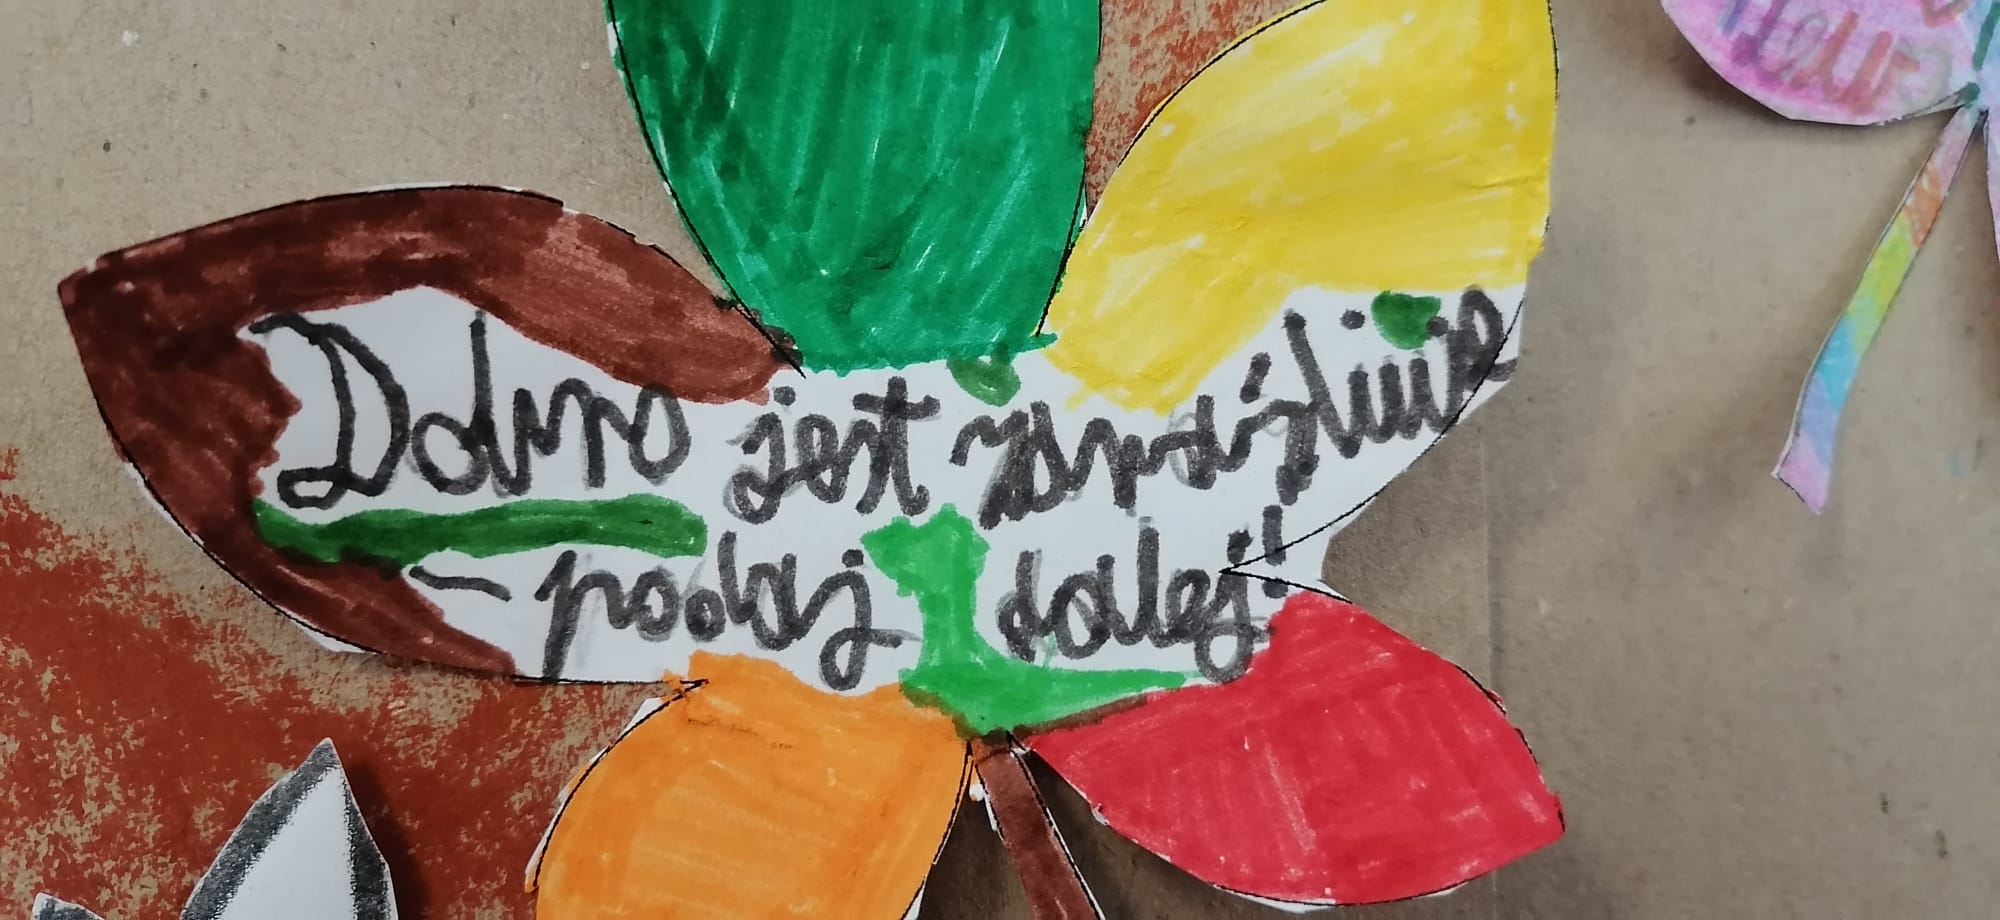 Dobro jest zaraźliwe
- podaj dalej!